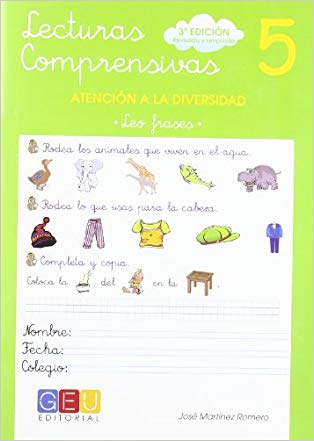 Lecturas
Comprensivas
3ª EDICIÓN
Revisada y ampliada
5
ATENCIÓN A LA DIVERSIDAD
• Leo frases •
Rodea los animales que viven en el agua.
Rodea lo que usas para la cabeza.
Completa y copia.
Coloca la del en la .
Nombre:
Fecha:
Colegio:
GEU
EDITORIAL
José Martínez Romero